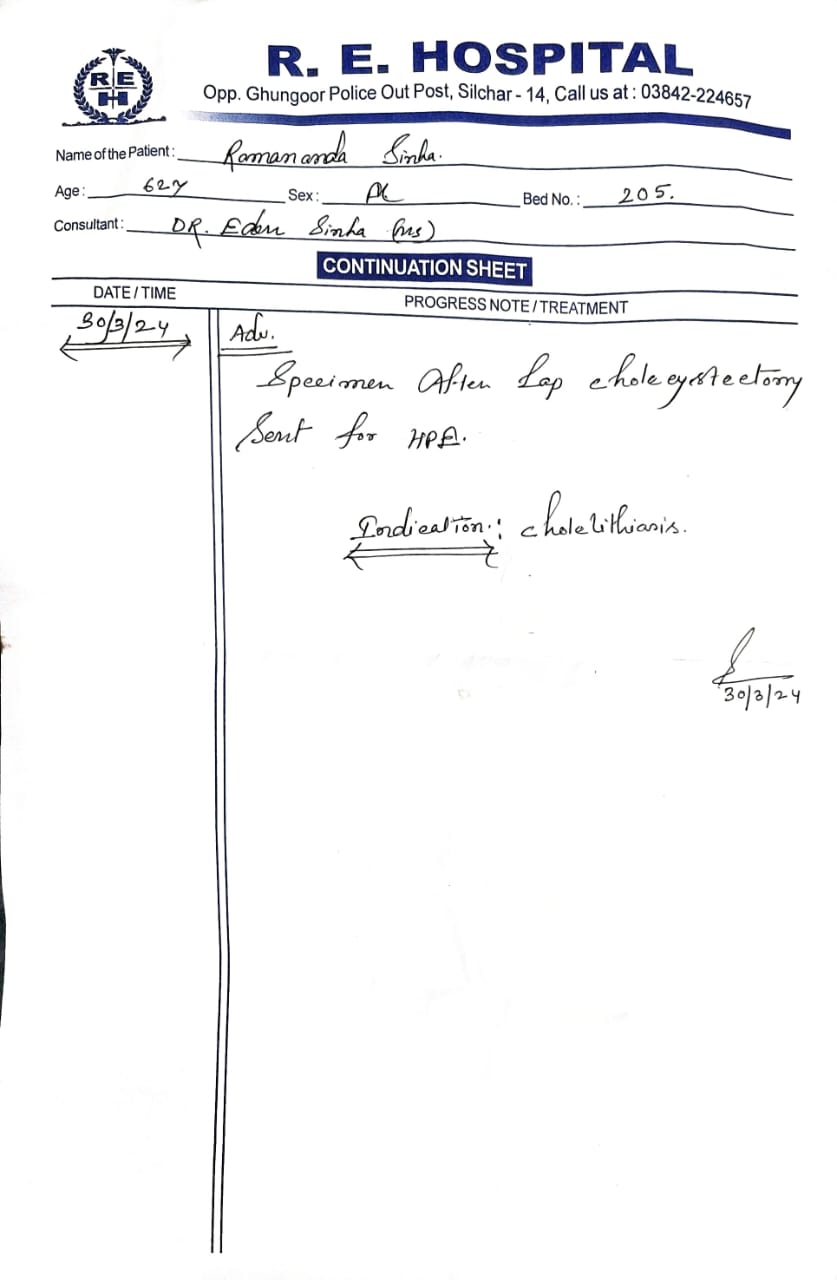 R. E. HOSPITAL
R E
H
Opp. Ghungoor Police Out Post, Silchar - 14, Call us at : 03842-224657
Name of the Patient : Ramananda Sinha.
Age : 62y Sex : M Bed No. : 205.
Consultant : DR. Eden Sinha (MS)
CONTINUATION SHEET
DATE / TIME PROGRESS NOTE / TREATMENT
30/3/24 Adv.
Specimen After Lap cholecystectomy
Sent for HPE.
Indication : cholelithiasis.
30/3/24